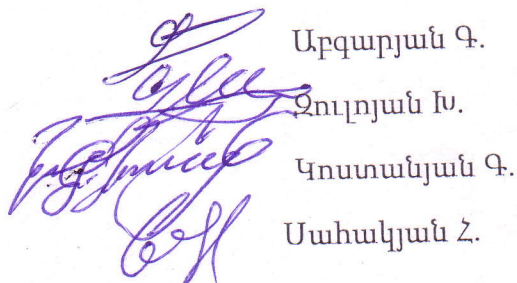 Աբգարյան Գ.
Զուլոյան Խ.
Կոստանյան Գ.
Սահակյան Հ.